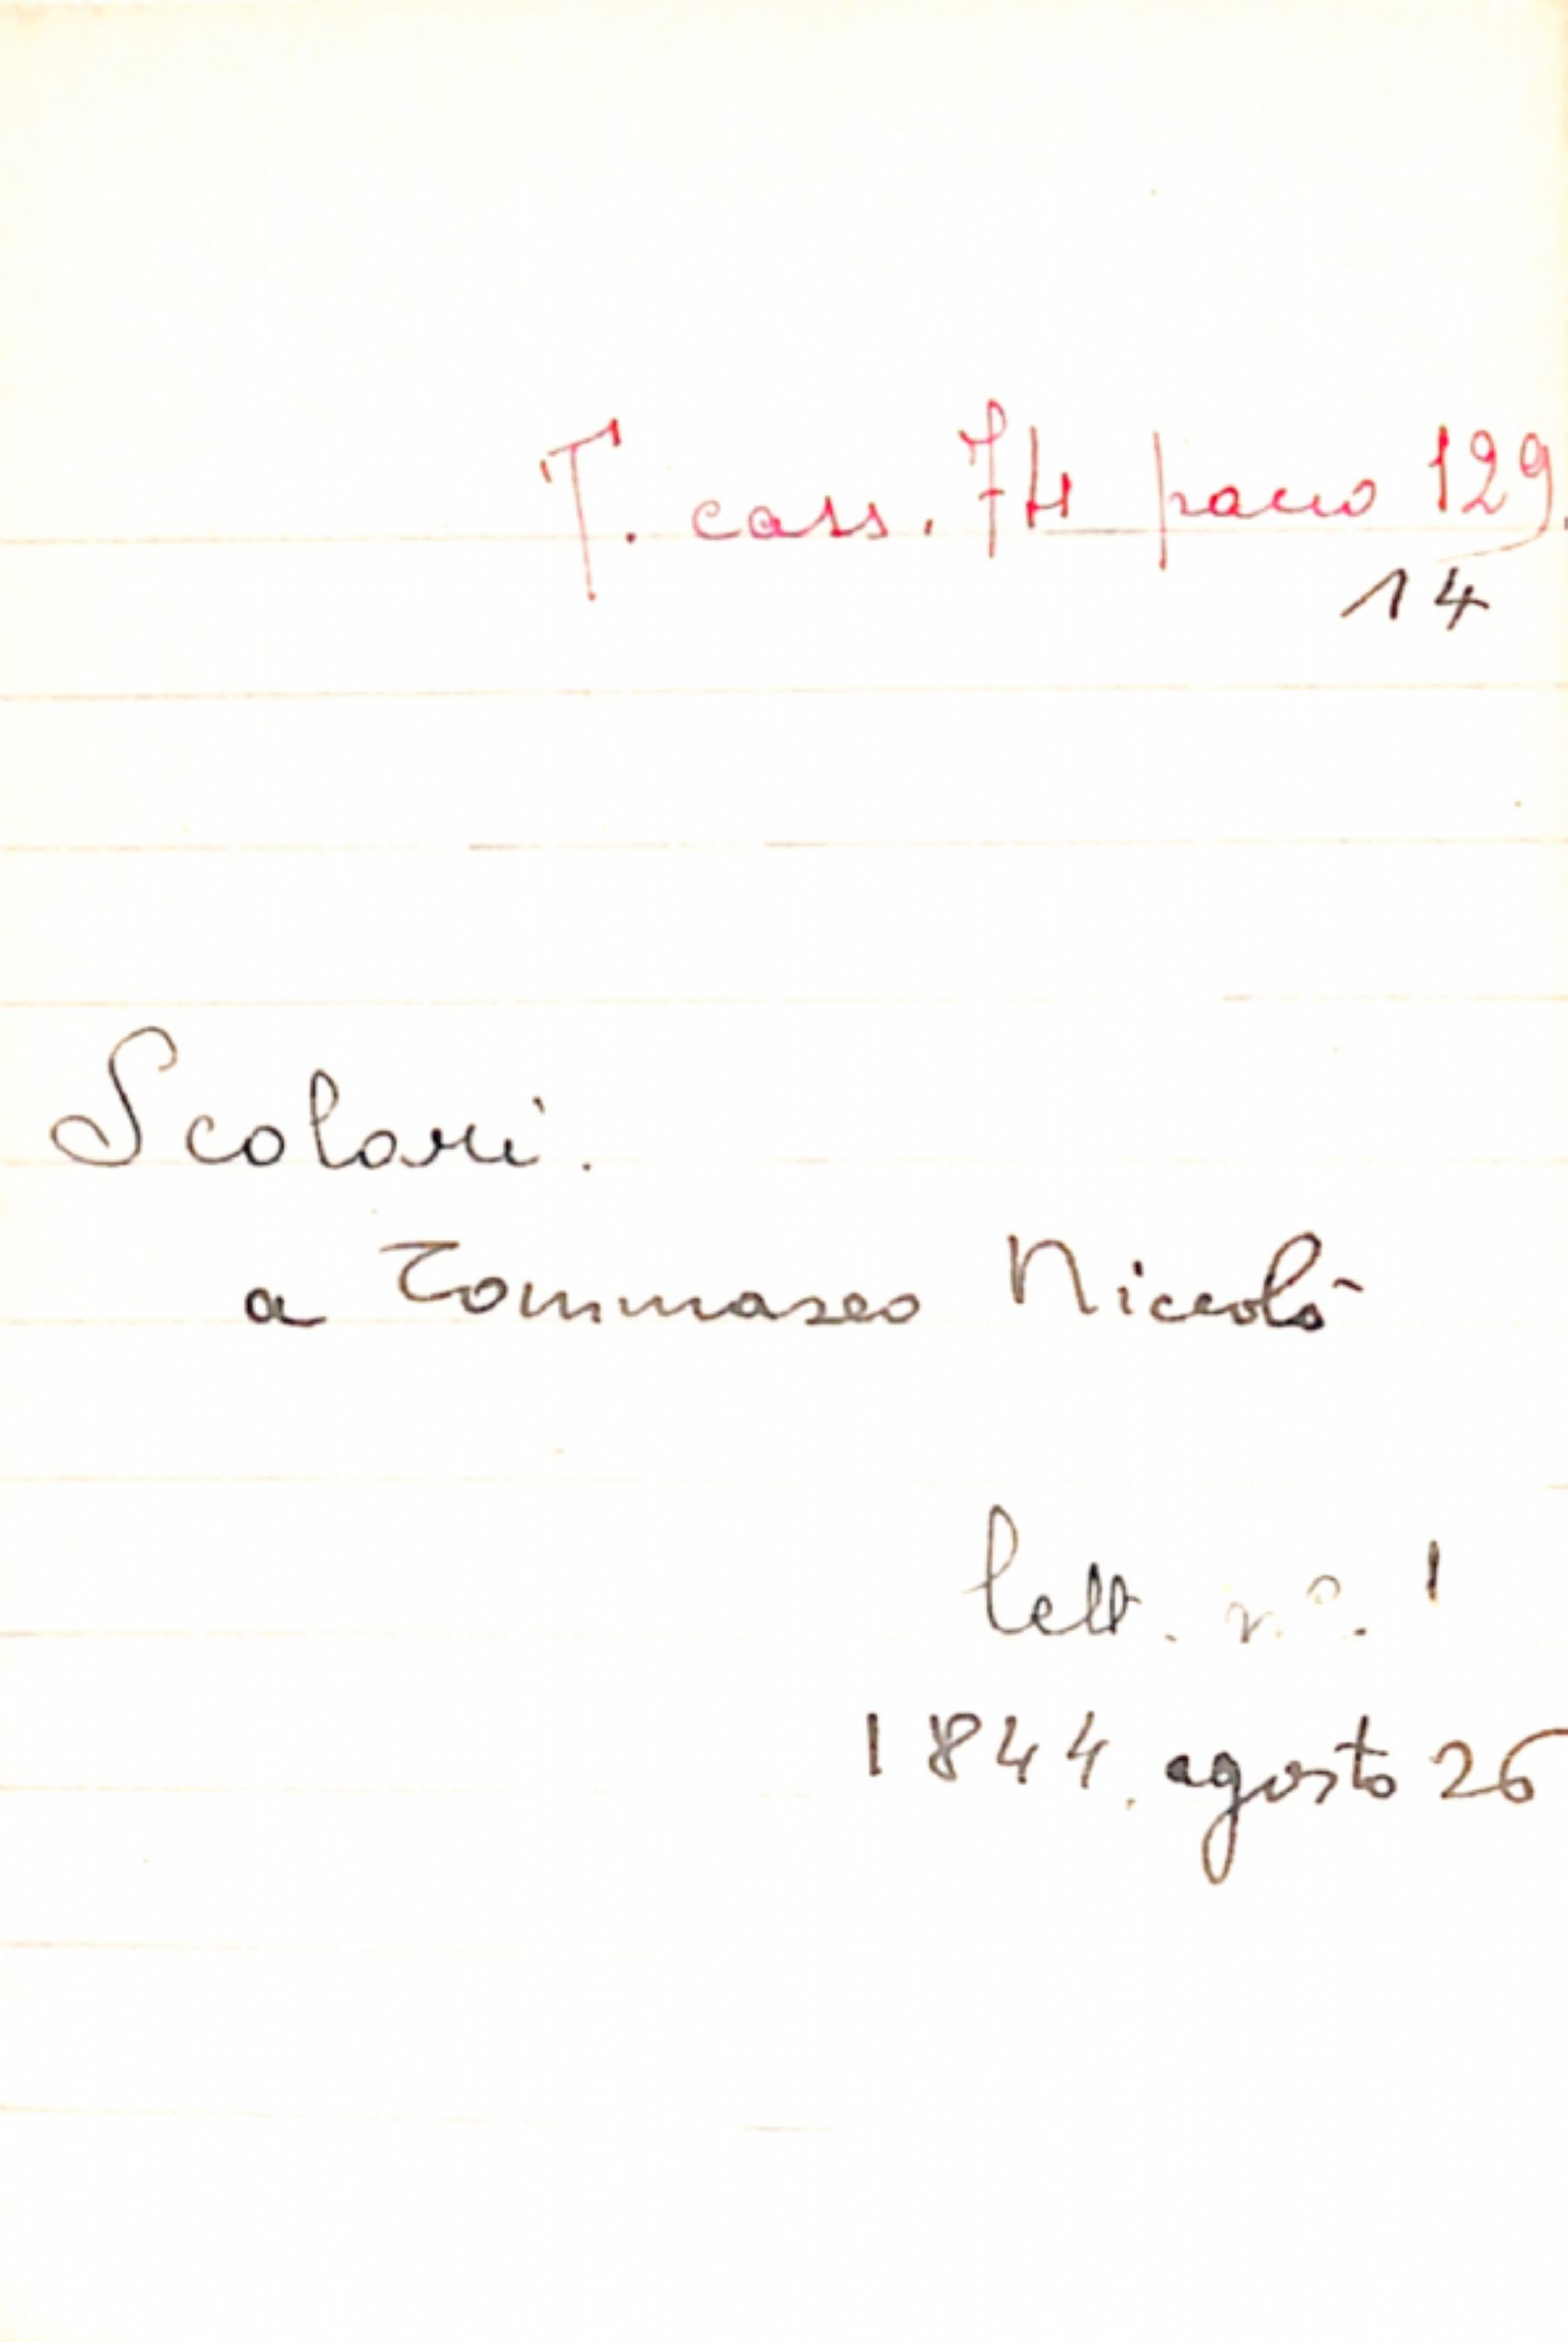 T. cass. 74 pacco 129.
14
Scolari.
a Tommaseo Niccolò
lett. n.º 1
1844. agosto 26